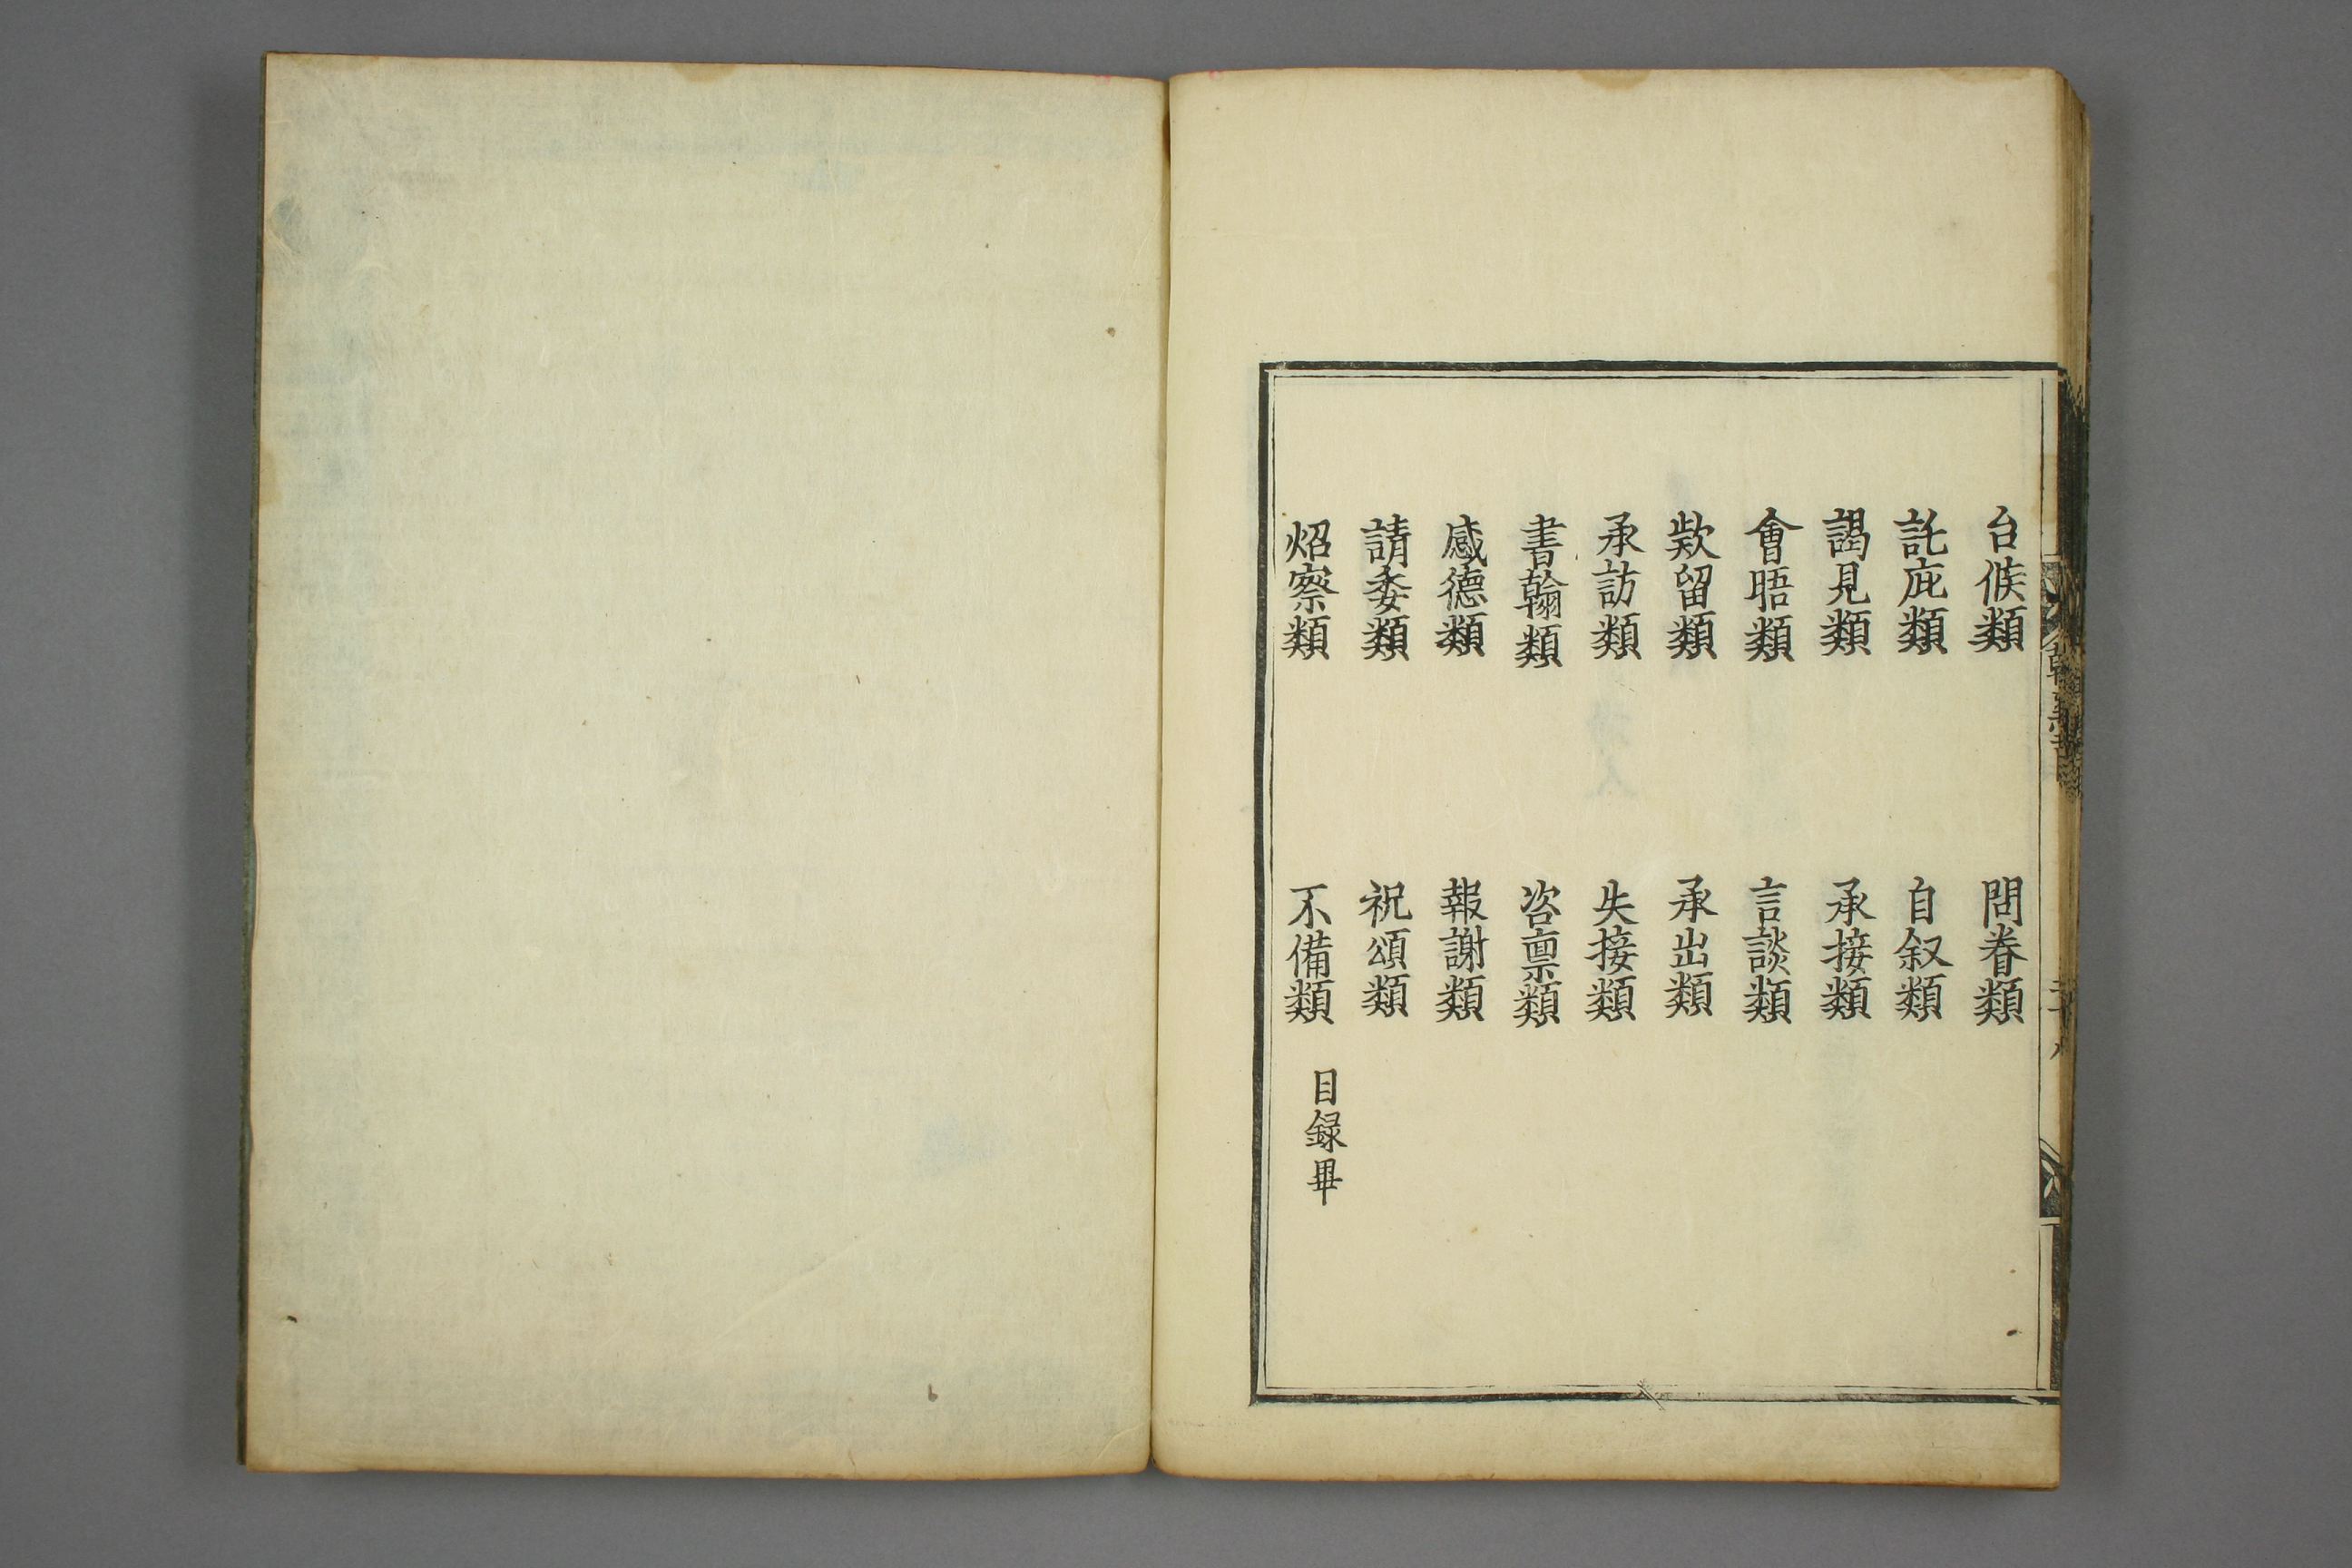 台候類　問眷類
託庇類　自叙類
謁見類　承接類
會晤類　言談類
欵留類　承出類
承訪類　失接類
書翰類　咨禀類
感德類　報謝類
請委類　祝頌類
炤察類　不備類　目録畢